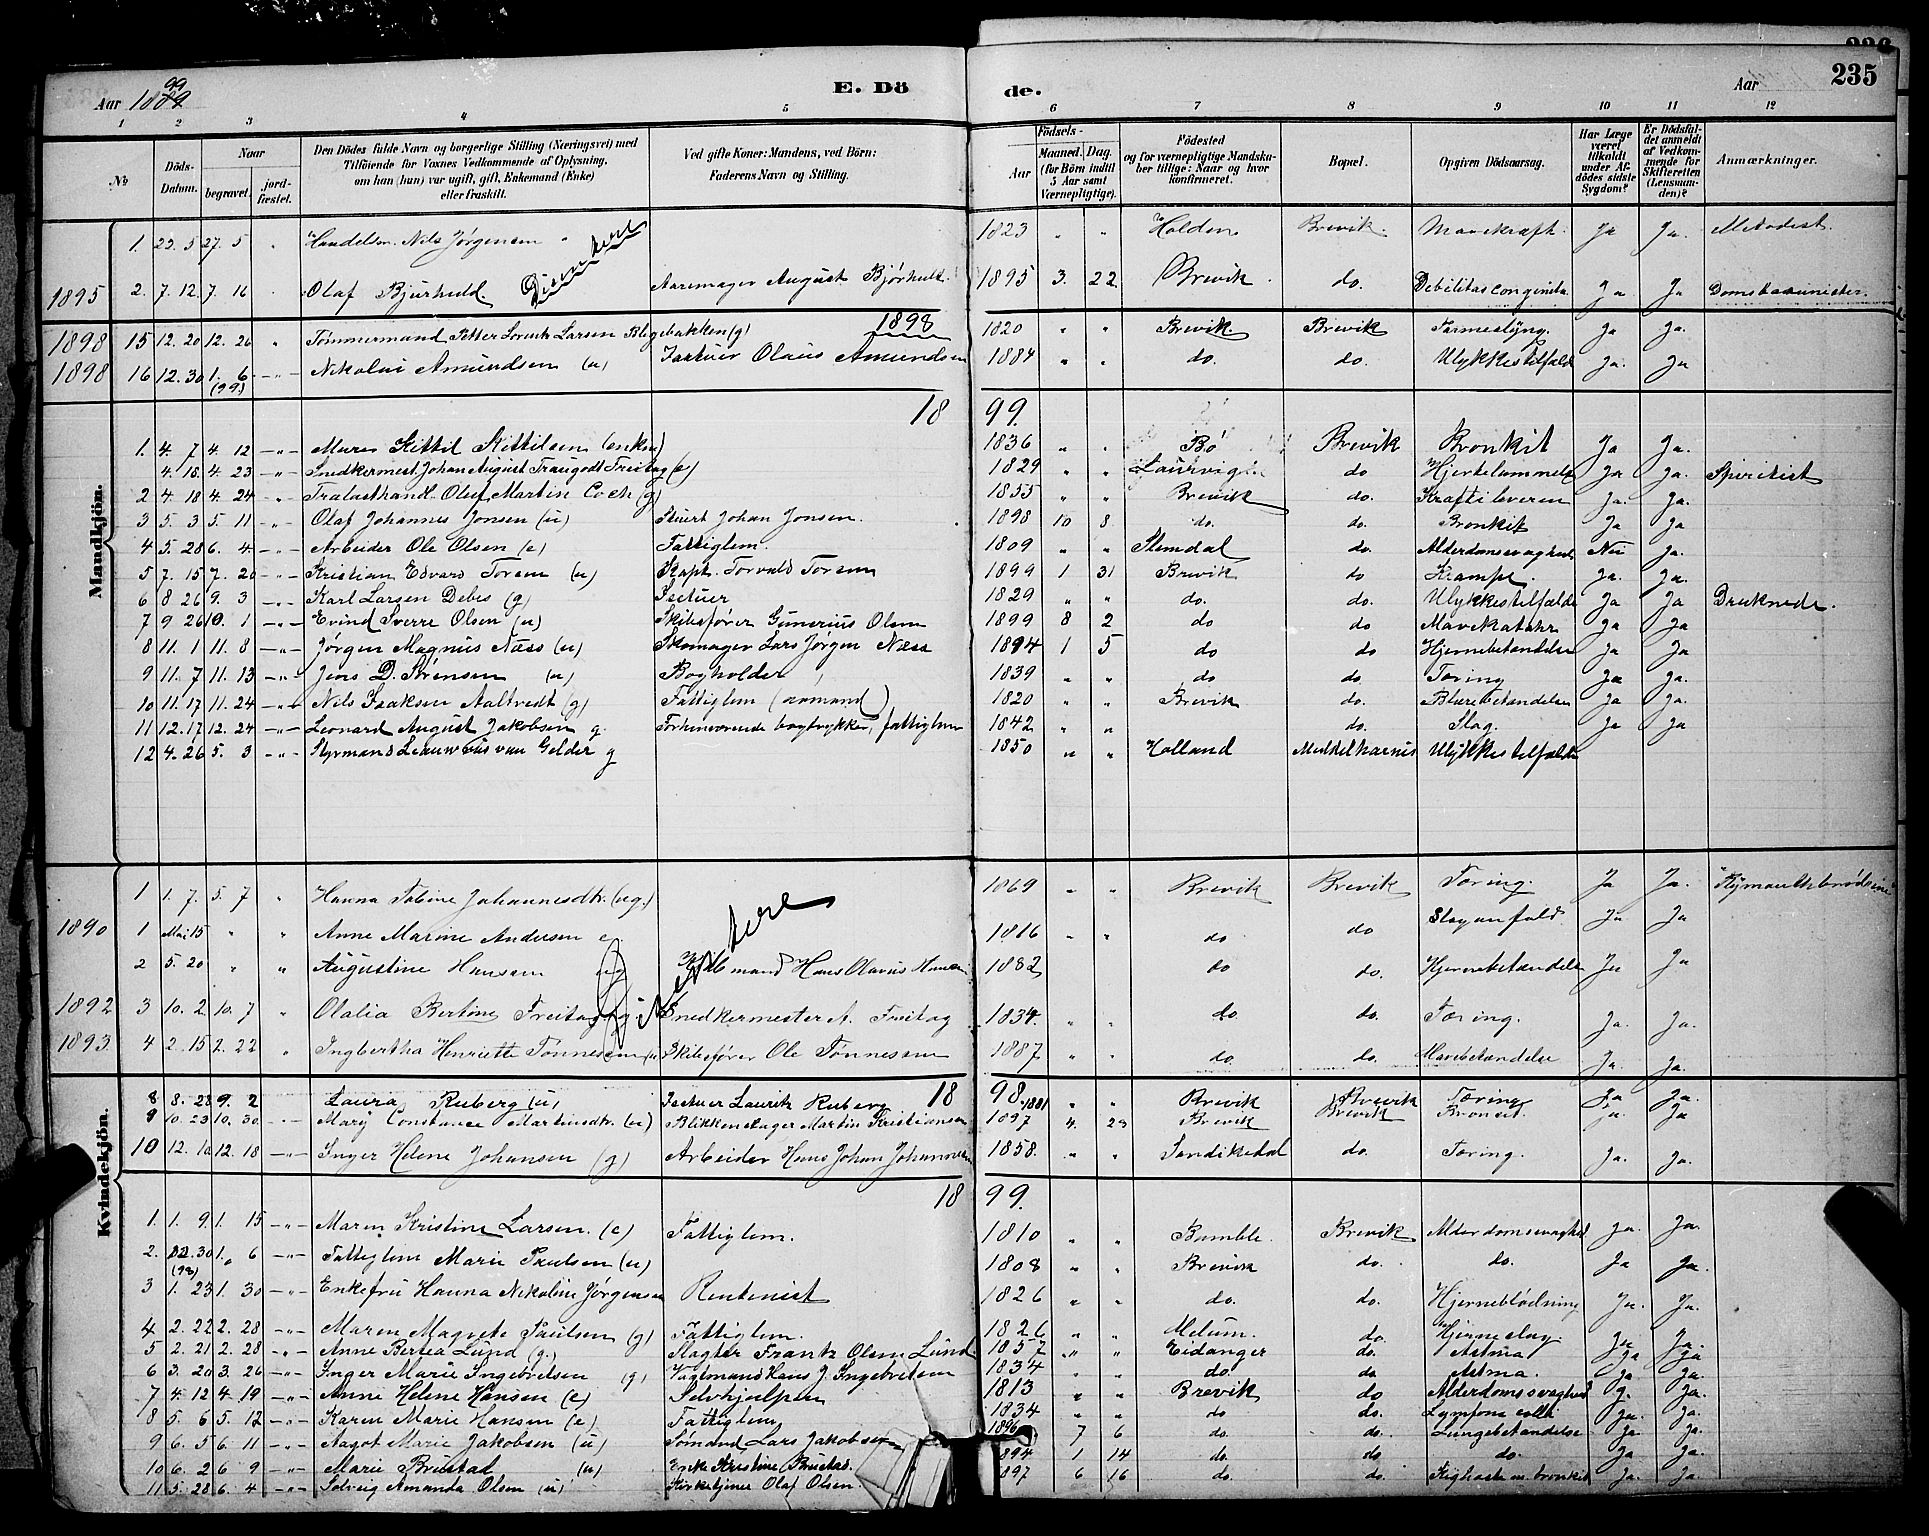 Aar 1899
E. Dö
de.
Aar
235
1 2 3 4 5 6 7 8 9 10 11 12
№
Döds-Datum.
Naar
begravet.
jord-fæstet.
Den Dödes fulde Navn og borgerlige Stilling (Næringsvei) med
Tilföiende for Voxnes Vedkommende af Oplysning,
om han (hun) var ugift, gift, Enkemand (Enke)
eller fraskilt.
Ved gifte Koner: Mandens, ved Börn:
Faderens Navn og Stilling.
Födsels-
Aar
Maaned. Dag.
(for Börn indtil
5 Aar samt
Værnepligtige).
Födested
og for værnepligtige Mandska-
ber tillige: Naar og hvor
konfirmeret.
Bopæl.
Opgiven Dödsaarsag.
Har Læge
været
tilkaldt
under Af-
dödes sidste
Sygdom?
Er Dödsfal-
det anmeldt
af Vedkom-
mende for
Skifteretten
(Lensman-
den)?
Anmærkninger.
1. 23. 5 27. 5 " Handelsm. Nils Jørgensen 1823 " " Holden Brevik. Mavekræft. Ja Ja. Metodist.
Dissentere
1895 2. 7. 12. 7. 16 Olaf Bjurhuld. Aaremager August Bjørhuld 1895 3. 22 Brevik do. Debilitas congenita Ja Ja
1898
1898 15 12. 20 12. 26 " Tømmermand Petter Lorentz Larsen Blegebakken (g) 1820 " " Brevik. Brevik Tarmeslyng. Ja Ja.
1898 16 12. 30 1. 6. (99) -"- Nikolai Amundsen (u) Olaus Amundsen 1884 " " do. do. Ulykkestilfælde Ja. Ja
1899.
Mandkjön.
1. 4. 7 4. 12 -"- Murer Kittil Kittilsen (enkem) 1836 " " Bø Brevik Bronkit Ja Ja.
4. 18. 4. 23 -"- Snedkermest. Johan August Traugodt Freitag (e) 1829 " " Laurvig do Hjertelammelse Ja Ja. Spiritist
2 4. 18 4. 24 -"- Trælasthandl. Oluf Martin Coch (g) 1855 " " Brevik do. Kræft i leveren Ja. Ja.
3 5. 3 5. 11 -"- Olaf Johannes Jonsen (u) Stuert Johan Jonsen. 1898 10 8 do. do. Bronkit Ja Ja
4 5. 28 6. 4 -"- Arbeider Ole Olsen (e) Fattiglem. 1809 " " Slemdal do. Alderdomssvaghed Nei Ja.
5 7. 15 7. 20 -"- Kristian Edvard Torsen (u) Kapt. Torvald Torsen 1899 1 31 Brevik do Krampe. Ja. Ja.
6 8. 26 9. 3 -"- Karl Larsen Debes (g) 1829 " " do. do. Ulykkestilfælde Ja Ja Druknede.
7 9 26 10. 1 -"- Evind Sverre Olsen (u) Skibsfører Gunerius Olsen 1899 8 2 do do Mavekatahr Ja Ja
8 11. 1 11. 8 -"- Jørgen Magnus Næss (u) Skomager Lars Jørgen Næss 1894 1 5 do do Hjernebetændelse Ja Ja
9 11. 7 11. 13 -"- Jens D. Sørensen (u) Bogholder 1839 " " do do. Tæring Ja Ja
10 11. 17 11. 24 -"- Nils Isaksen Aaltvedt (g) Fattiglem (sømand) 1820 " " Brevik do. Blærebetændelse Ja Ja.
11 12. 17 12. 24 -"- Leonard August Jakobsen g. Forhenværende bogtrykker, fattiglem 1842 " " do. Slag. Ja Ja
12 4. 26 5. 3 -"- Styrmand van Gelder g 1850 " " Holland Middelharnis Ulykkestilfælde
Kvindekjön.
1 1. 7. 5. 7 " Hanna Tobine Johannesdtr. (ug.) 1869 " " Brevik Brevik Tæring. Ja Ja.
Dissentere
1890 1 Mai 15 " " Anne Marine Andersen e 1816 " " do do Slaganfald Ja Ja
2 5. 20 " " Augustine Hansen ug Hans Olavus Hansen 1882 do do. Hjernebetændelse Ja Ja
1892 3 10. 2 10. 7 " Olalia Bertine Freitag g. Snedkermester A. Freitag 1834. " " do do. Tæring. Ja. Ja.
1893. 4 2. 15 2. 22 " Ingbertha Henriette Tønnesen u Skibsfører Ole Tønnesen 1887 " " do do. Mavebetændelse Ja. Ja.
1898.
8 8. 28 9. 2 Laura Ruberg (u) Lauritz Ruberg 1881 " " Brevik Brevik Tæring Ja Ja.
9 10. 23 10. 30. -"- Mary Constance Martinsdtr. (u) Blikkenslager Martin Kristiansen 1897 4. 23 Brevik Brevik Bronkit. Ja. Ja
10 12. 10 12. 18 -"- Inger Helene Johansen (g) Arbeider Hans Johan Johannesen 1858. " " Sandikedal do. Tæring. Ja. Ja.
1899.
1. 1. 9. 1. 15 -"- Maren Kristine Larsen. (e) Fattiglem. 1810 " " Bamble. Brevik Alderdomssvaghed Ja. Ja.
2. 12. 30 (98) 1. 6 -"- Fattiglem Marie Paulsen (u) 1808 " " Brevik do. do. Ja Ja.
3 1. 23 1. 30 -"- Enkefru Hanna Nikoline Jørgensen Rentenist 1826 " " do. do. Hjerneblødning Ja. Ja.
4 2. 22 2. 28 -"- Maren Magrete Paulsen (g) Fattiglem. 1826 " " Melum. do. Hjerneslag. Ja Ja.
5 2. 21 2. 28 -"- Anne Bertea Lund (g.) Slagter Frantz Olsen Lund 1857 " " Eidanger do. Astma Ja Ja
6 3. 20 3. 26 -"- Inger Marie Ingebretsen (g) Vagtmand Hans J. Ingebretsen 1834 " " do. do Astma. Ja Ja.
7 4. 12 4. 19 -"- Anne Helene Hansen (e) Selvhjulpen 1813 " " Brevik do Alderdomssvaghed Ja. Ja.
8 5. 6 5. 12 -"- Karen Marie Hansen (e) Fattiglem 1834 " " do do. Lymfoma colli Ja. Ja.
9 6. 5 6. 11 -"- Aagot Marie Jakobsen (u) Sømand Lars Jakobsen 1896 7 6 do. do. Lungebetændelse Ja Ja.
10 6. 2 6 9 -"- Marie Brustad (u) Enke Kristine Brustad. 1894 1 14 do. do do. Ja Ja
11 5. 28 6. 4 -"- Solveig Amanda Olsen (u) Kirketjener Olaf Olsen. 1897 6 16 do. do. Kighoste m. bronkit Ja. Ja.